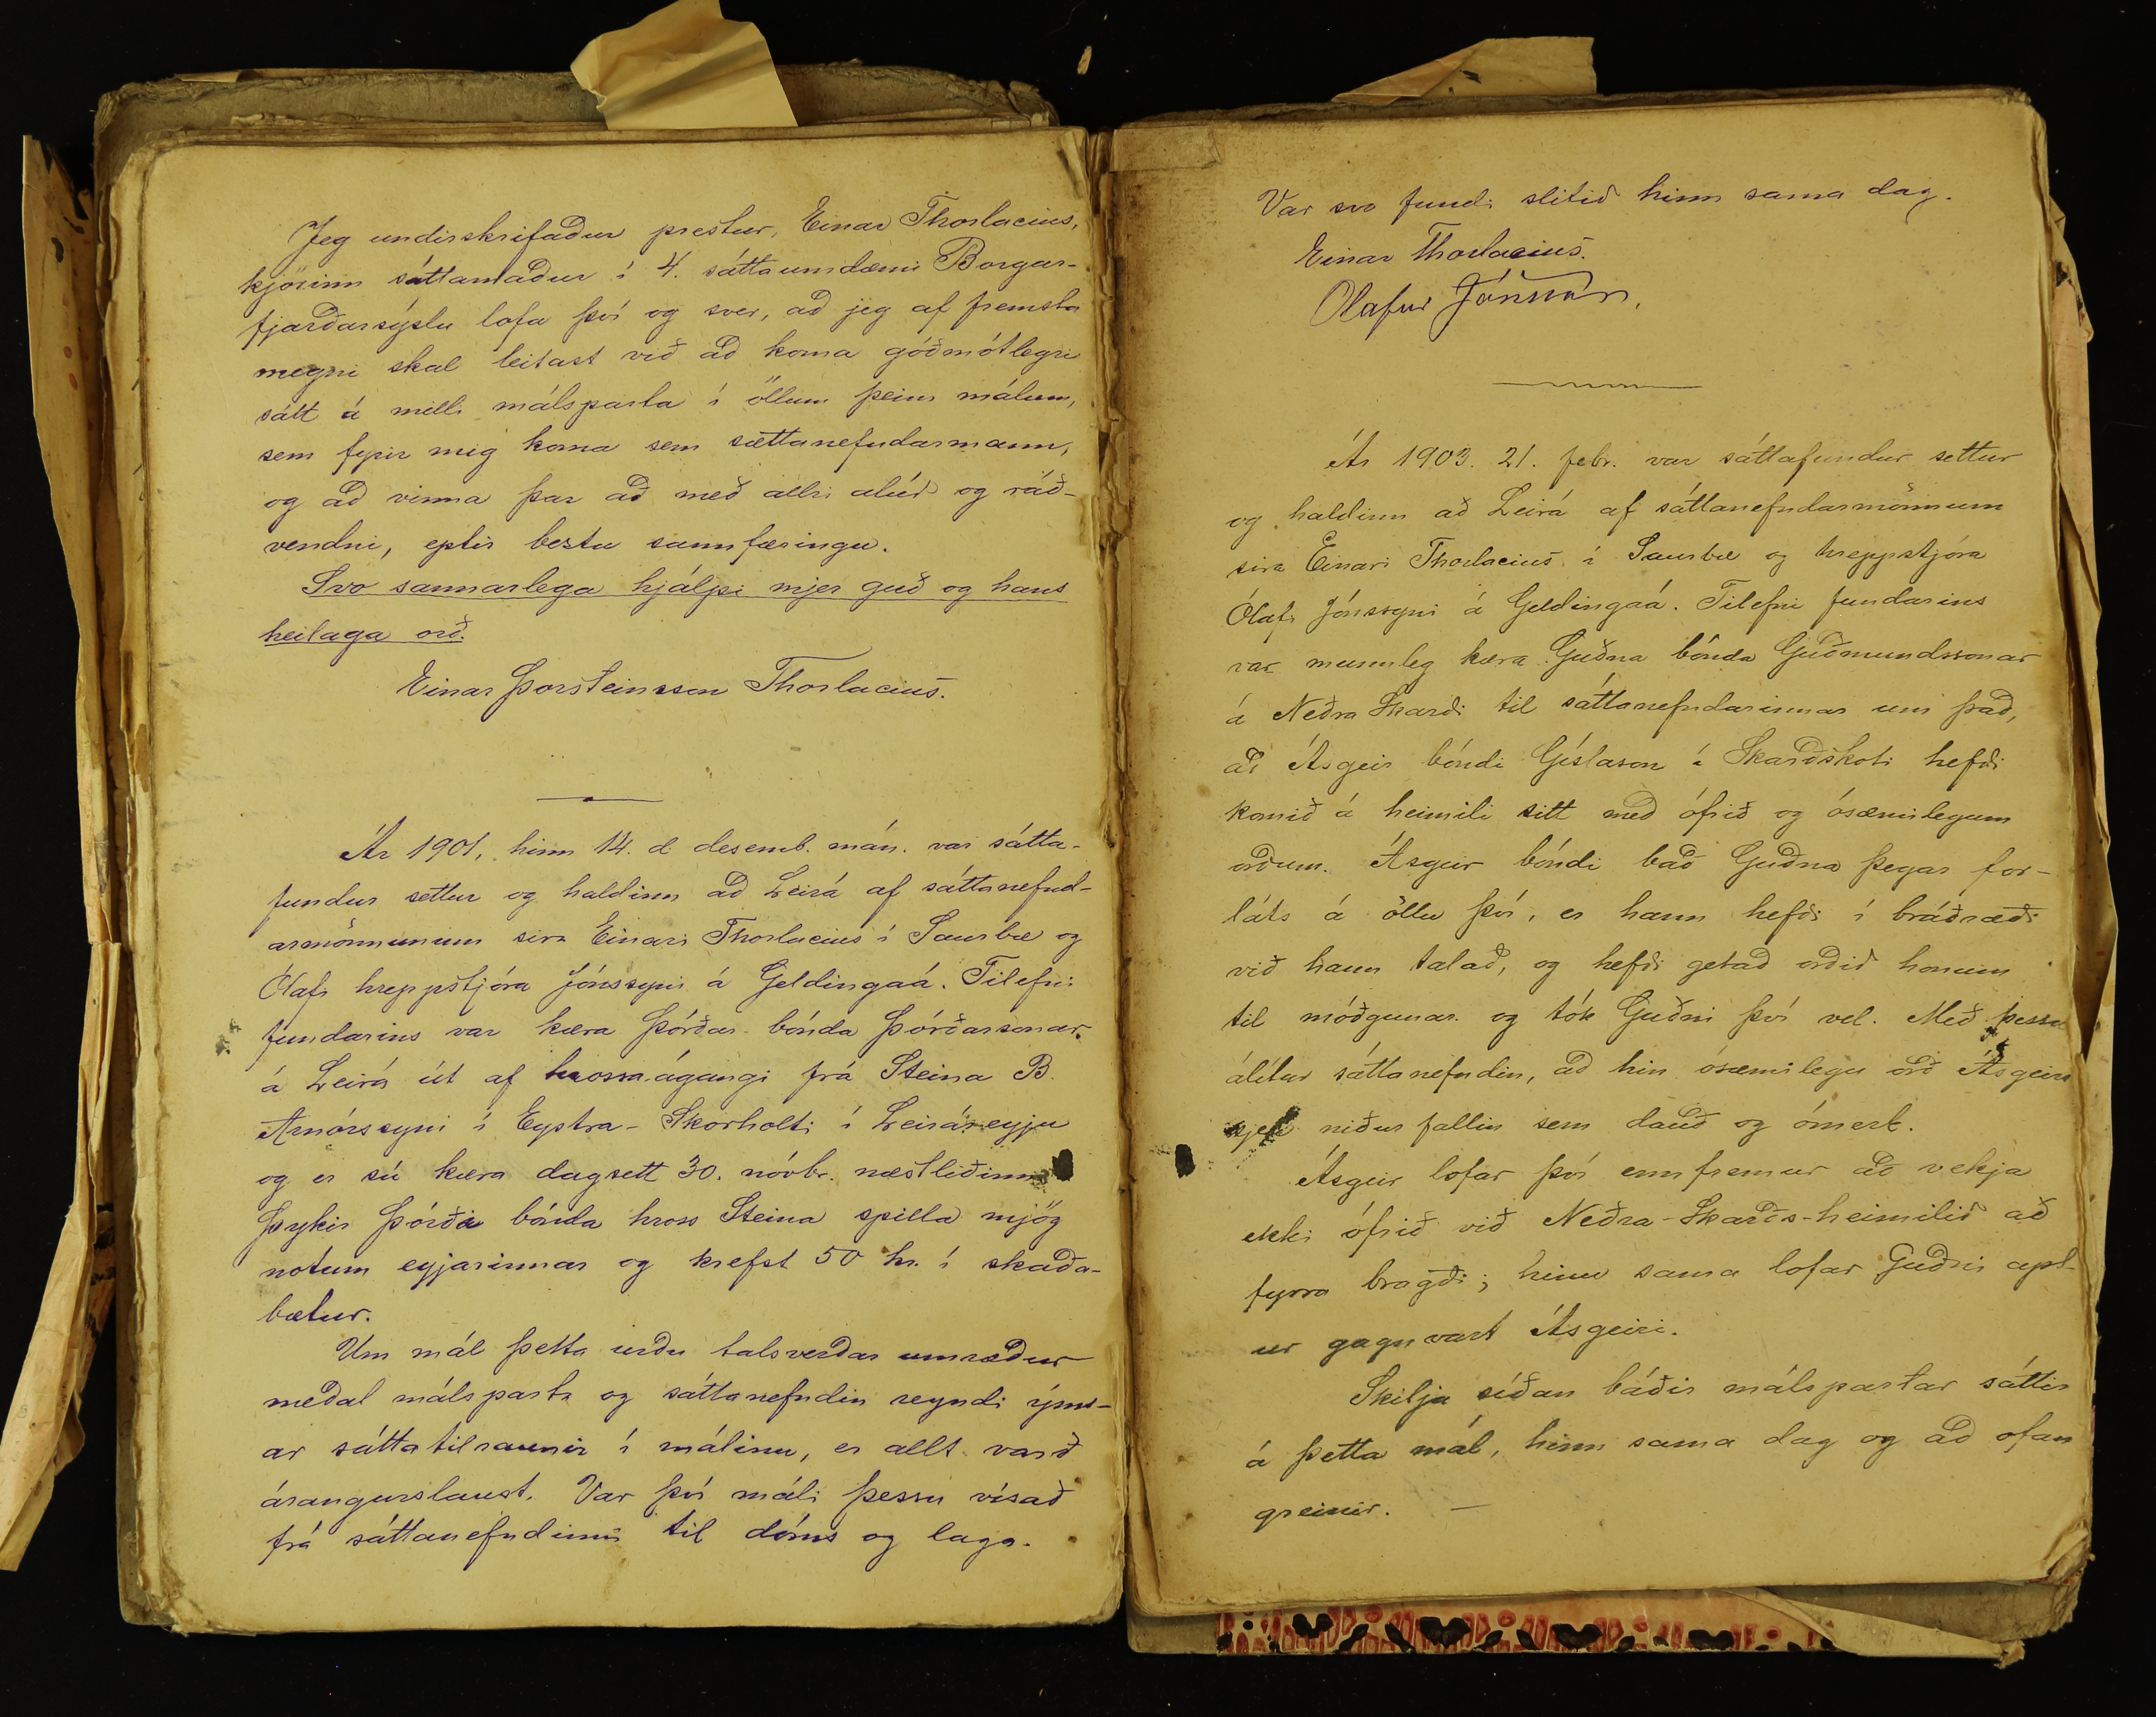 Jeg undirskrifaður prestur, Einar Thorlacius,
kjörinn sáttamaður í 4. sáttaumdæmi Borgar-
fjarðarsýslu lofa því og sver, að jeg af fremsta
megni skal leitast við að koma góðmótlegri
sátt á milli málsparta í öllum þeim málum,
sem fyrir mig koma sem sættanefndarmann,
og að vinna þar að með allri alúð og ráð-
vendni, eptir beztu sannfæringu.
Svo sannarlega hjálpi mjer guð og hans
heilaga orð.
Einar Þorsteinsson Thorlacius.
Ár 1901, hinn 14. d desemb. mán. var sátta-
fundur settur og haldinn að Leirá af sáttanefnd-
armönnunum sira Einari Thorlacius í Saurbæ og
Ólafi hreppstjóra Jónssyni á Geldingaá. Tilefni
fundarins var kæra Þórðar bónda Þórðarsonar
á Leirá út af hrossaágangi frá Steina B.
Arnórssyni í Eystra-Skorholti í Leiráreyju
og er sú kæra dagsett 30. nóvbr. næstliðinn
Þykir Þórði bónda hross Steina spilla mjög
notum eyjarinnar og krefst 50 kr. í skaða-
bætur.
Um mál þetta urðu talsverðar umræður
meðal málsparta og sáttanefndin reyndi ýms-
ar sáttatilraunir í málinu, er allt varð
árangurslaust. Var því máli þessu vísað
frá sáttanefndinni til dóms og laga.
Var svo fundi slitið hinn sama dag.
Einar Thorlacius.
Ólafur Jónsson.
Ár 1903. 21. febr. var sáttafundur settur
og haldinn að Leirá af sáttanefndarmönnum
sira Einari Thorlacius í Saurbæ og hreppstjóra
Ólafi Jónssyni á Geldingaá. Tilefni fundarins
var munnleg kæra Guðna bónda Guðmundssonar
á Neðra Skarði til sáttanefndarinnar um það,
að Ásgeir bóndi Gíslason í Skarðskoti hefði
komið á heimili sitt með ófrið og ósæmilegum
orðum. Ásgeir bóndi bað Guðna þegar for-
láts á öllu því, er hann hefði í bráðræði
við hann talað, og hefði getað orðið honum
til móðgunar og tók Guðni því vel. Með þessu
álítur sáttanefndin, að hin ósæmilegu orð Ásgeirs
sjeu niður fallin sem dauð og ómerk.
Ásgeir lofar því ennfremur að vekja
ekki ófrið við Neðra-Skarðs-heimilið að
fyrra bragði; hinu sama lofar Guðni apt-
ur gagnvart Ásgeiri.
Skilja síðan báðir málspartar sáttir
á þetta mál, hinn sama dag og að ofan
greinir. —